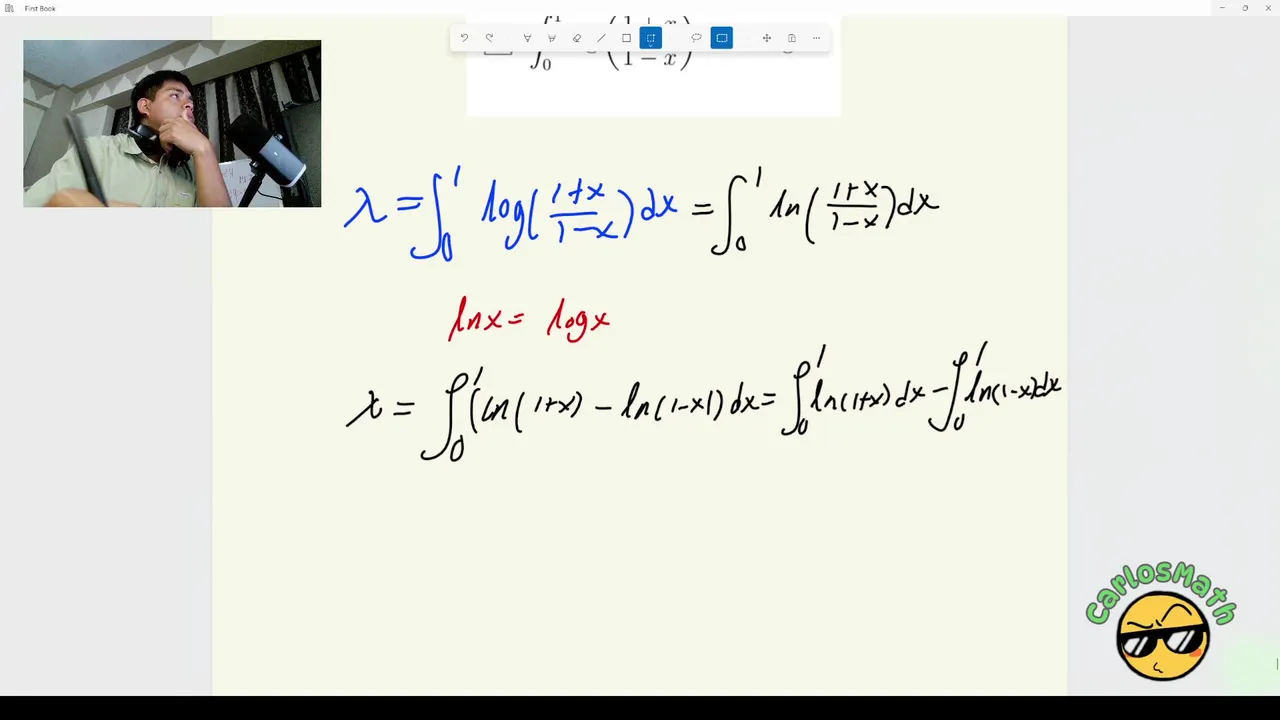 First Book
∫₀¹ (1+x / 1−x)
λ = ∫₀¹ log((1+x)/(1−x)) dx = ∫₀¹ ln((1+x)/(1−x)) dx
ln x = log x
λ = ∫₀¹ (ln(1+x) − ln(1−x)) dx = ∫₀¹ ln(1+x) dx − ∫₀¹ ln(1−x) dx
CarlosMath